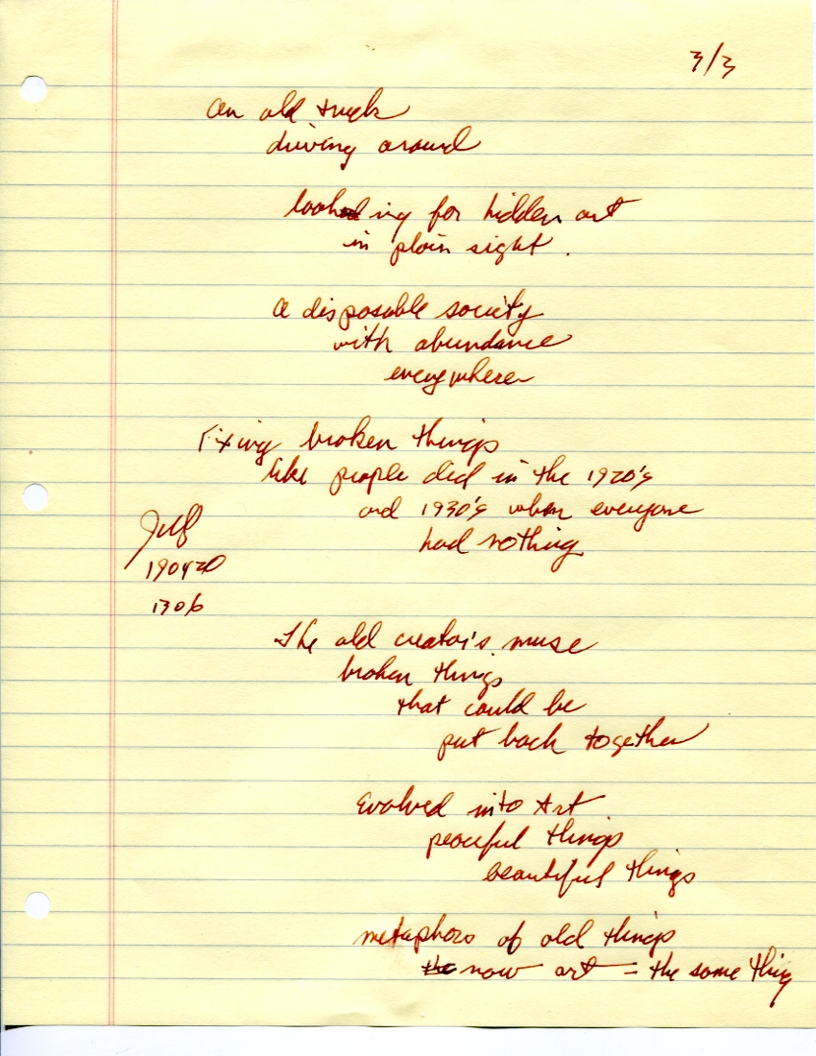 3/3
an old truck
driving around
looking for hidden art
in plain sight.
a disposable society
with abundance
everywhere
Fixing broken things
like people did in the 1920's
and 1930's when everyone
had nothing
190420
1306
The old creator's muse
broken things
that could be
put back together
Evolved into Art
peaceful things
beautiful things
metaphors of old things
now art = the same thing